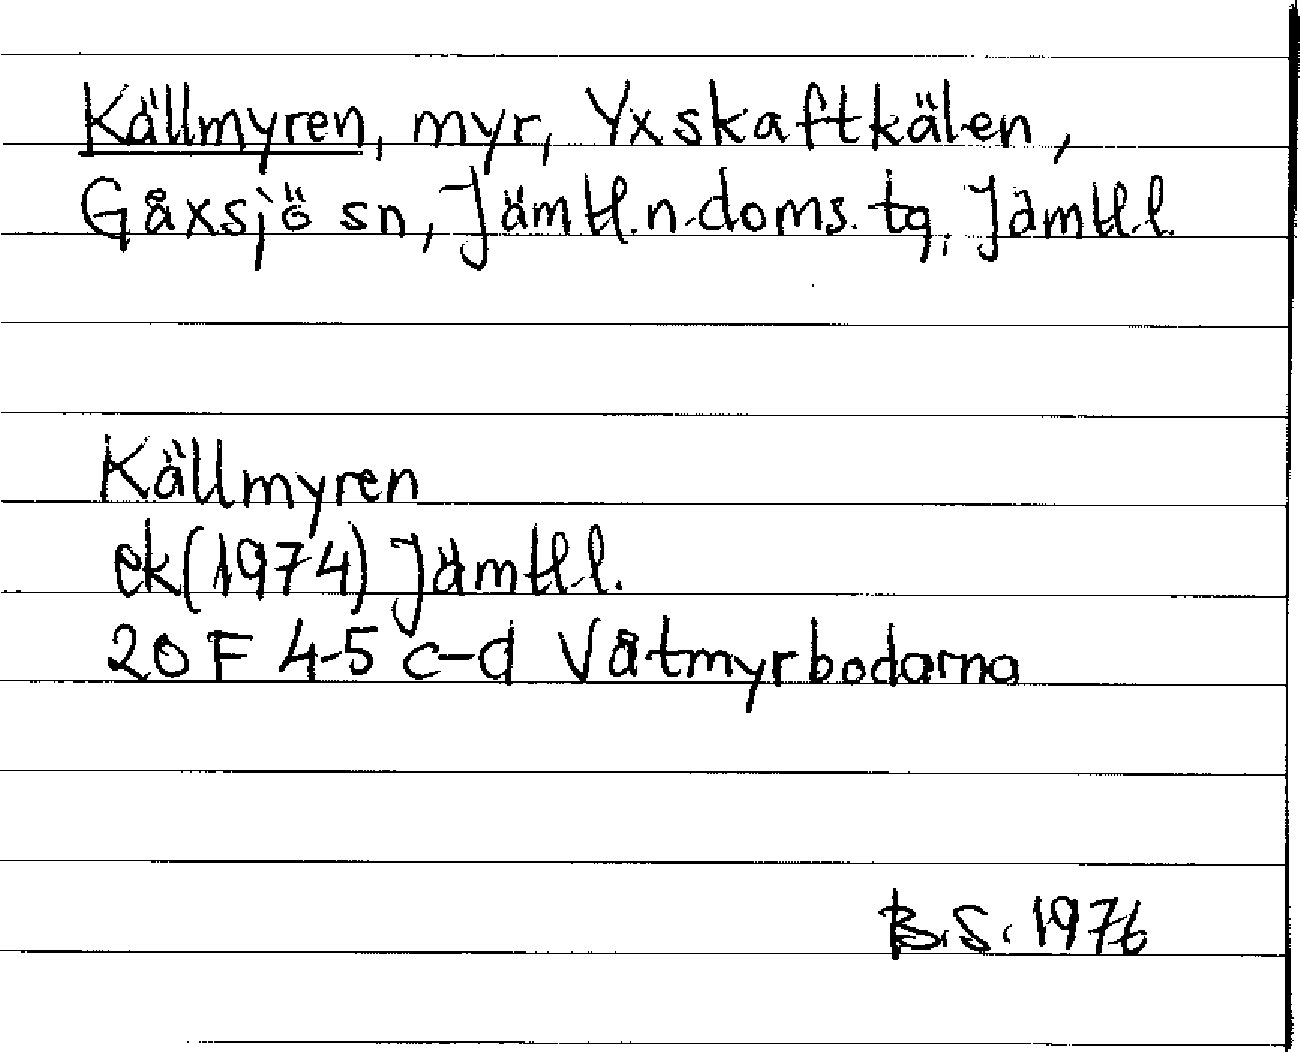 Källmyren, myr, Yxskaftkälen,
Gåxsjö sn, Jämtl.n.doms.tg, Jämtl.l.
Källmyren
ek(1974) Jämtl.l.
20 F 4-5 c-d Våtmyrbodarna
B.S. 1976